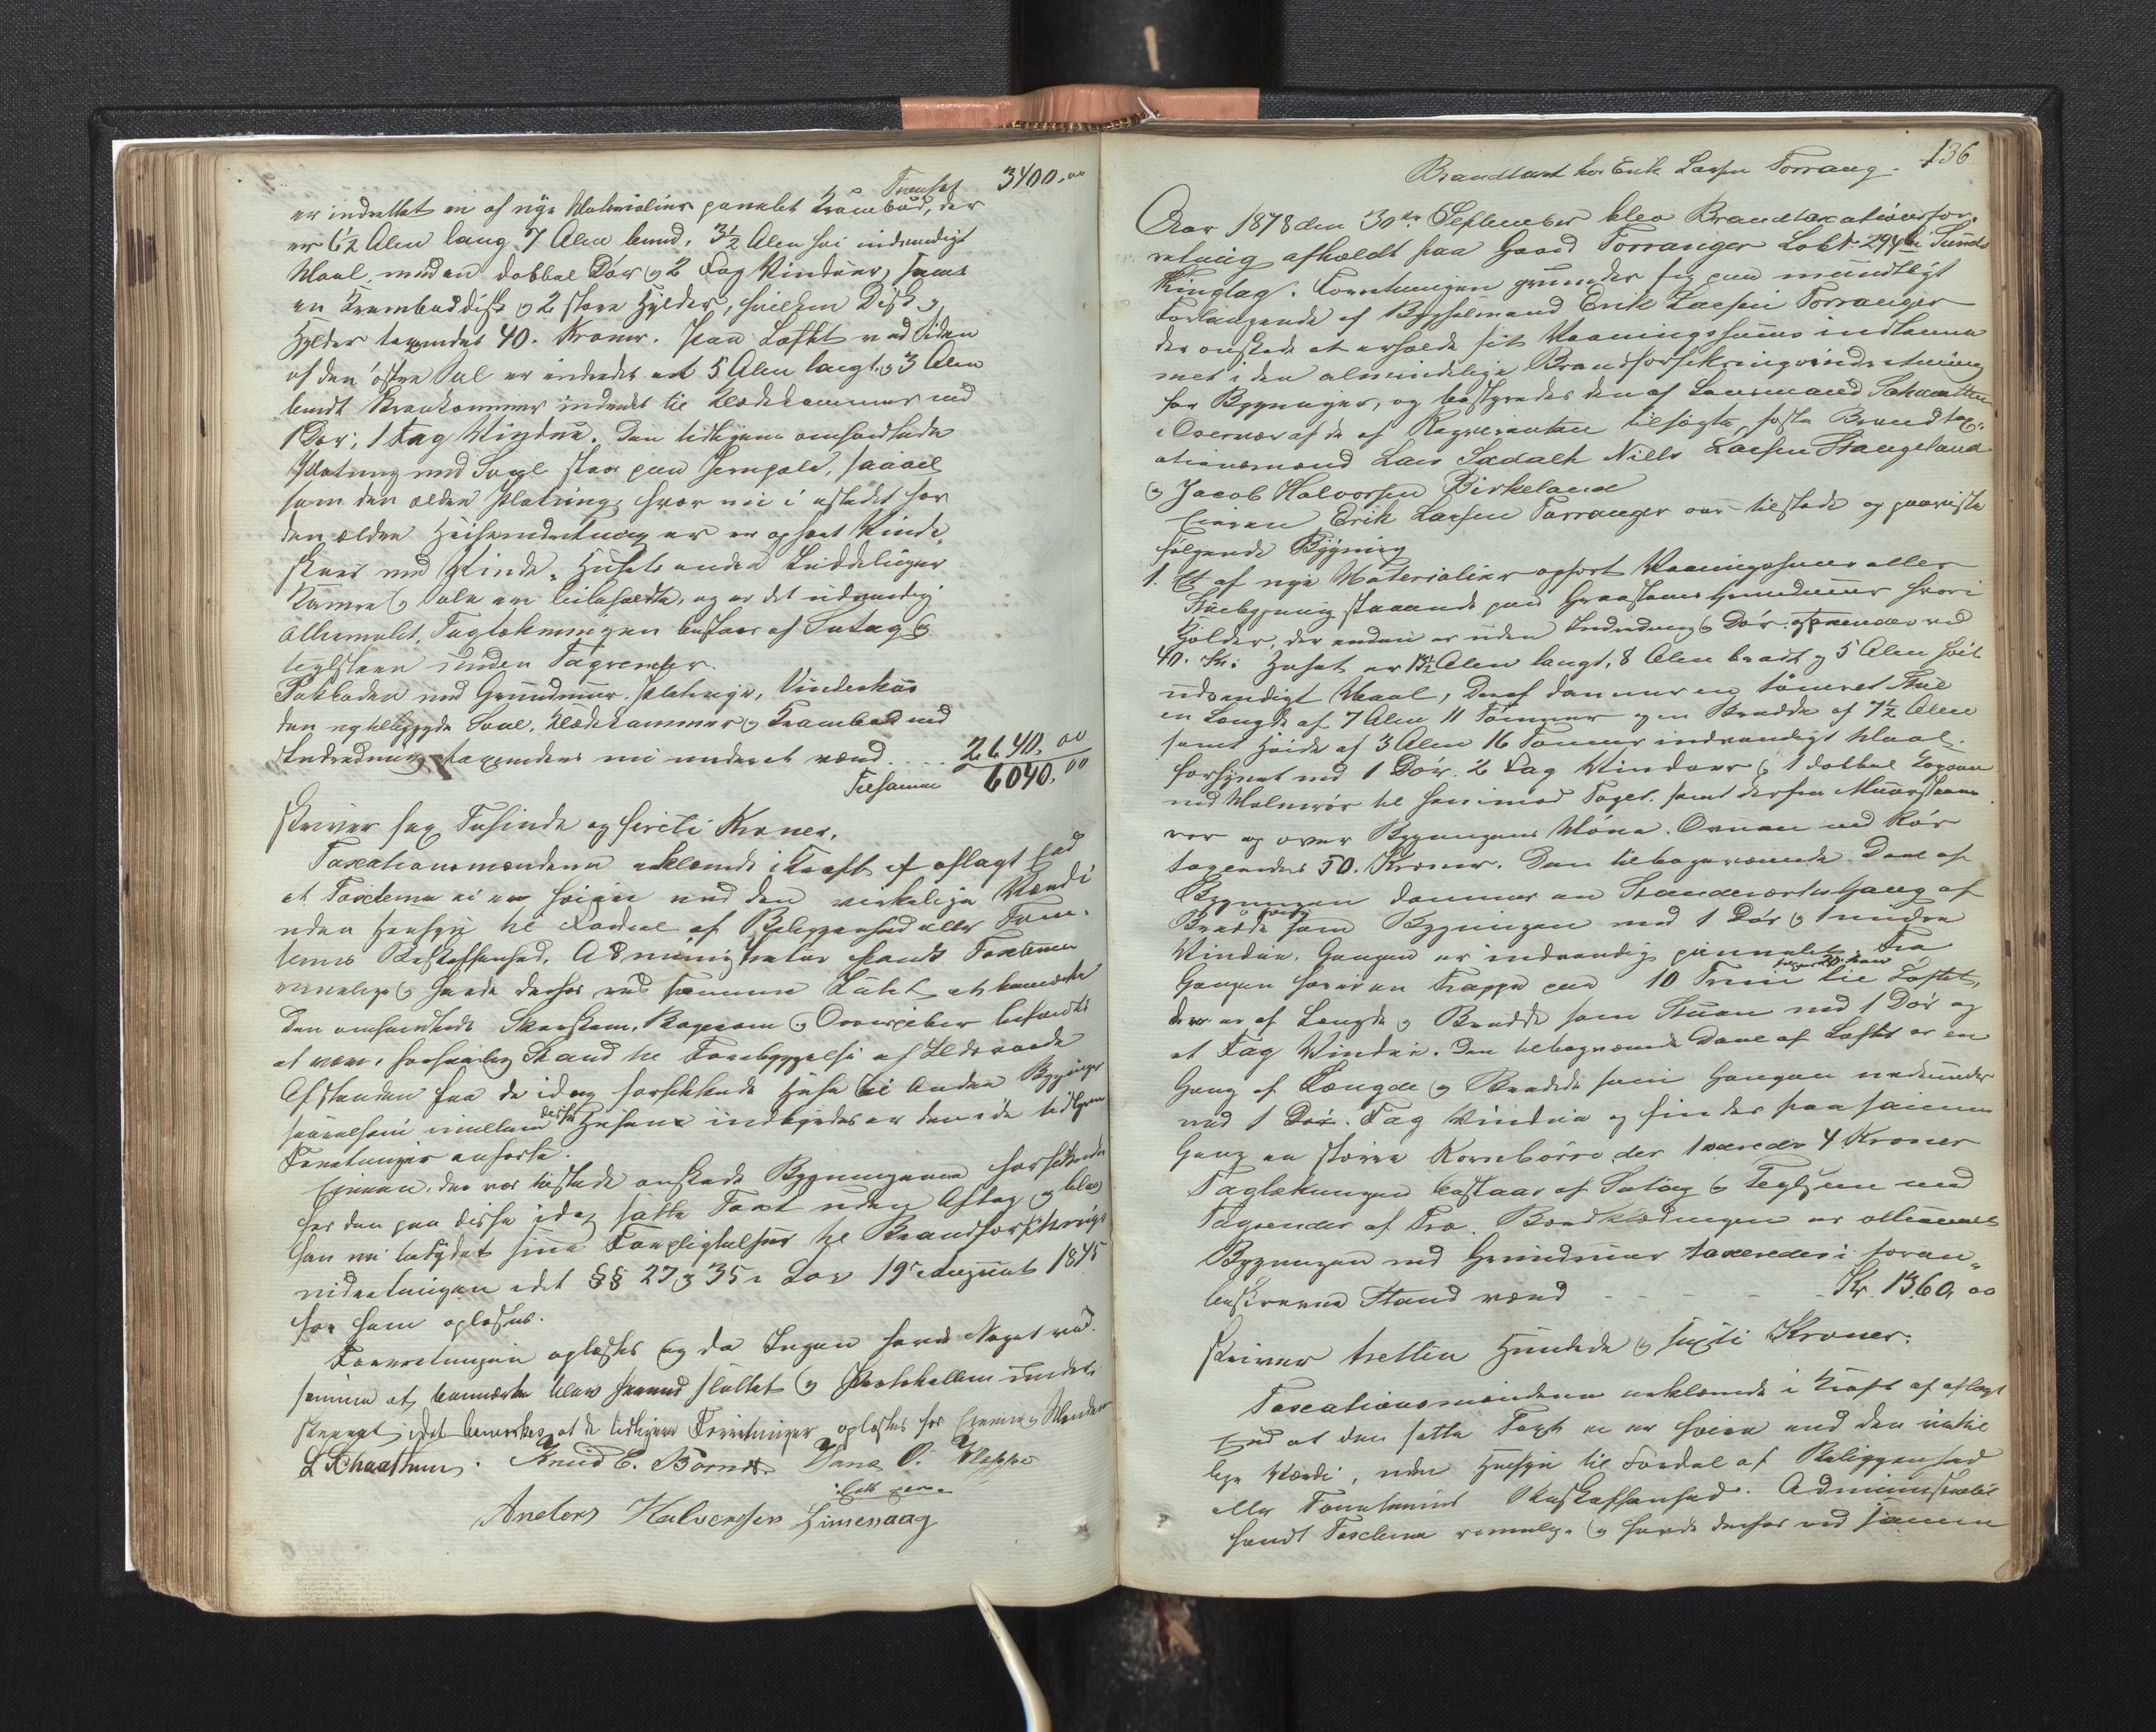 Transport 3400,00
er indrettet en af nye Materialier panelet Krambod, der
er 6½ Alen lang 7 Alen bred, 3½ Alen høi indvendigt
Maal, med en dobbel Dør og 2 Fag Vinduer, samt
en Kramboddisk og 2 store Hylder, hvilken Disk og
Hylder taxeredes 40. Kroner. Paa Loftet ved Siden
af den østre Sal er indredet et 5 Alen langt og 3 Alen
bredt indredet til Klædekammer med
1 Dør, 1 Fag Vindue. Den tidligere omhandlede
Platning med Svale staar paa Jernpæle, saavel
som den ældre Platning, hvor nu i istedet for
den ældre Heiseindretning er er opsat Vinde-
skuur med Vinde. Husets anden Inddelinger
Kamre og Sale ere beklædte, og er det udvendig
oliemalet, Taglækningen bestaar af Sutag og
teglsteen Tagrender.
Pakboden med Grundmur, Platninger, Vindeskuur
den nytilbyggede Svale, Klædekammer og Krambod med
Indredning taxeredes nu under et værd .... 2640,00
Tilsammen 6040,00
skriver sex Tusinde og firti Kroner.
Taxationsmændene erklærede i Kraft af aflagt Eed
at Taxterne ei er høiere end den virkelige Værdi
uden Hensyn til Fordel af Beliggenhed eller Tom-
tens Beskaffenhed. Administrator fandt Taxterne
rimelige og havde derfor ved samme Intet at bemærke
Den omhandlede Skorsteen, Bagerovn og befandtes
at være i forsvarlig Stand til Forebyggelse af Ildsvaade
Afstanden fra de idag forsikkrede Huse til andre Bygninger
saavelsom imellem disse Husene indbyrdes er den i de tidligere
Forretninger anførte.
Eieren, der var tilstede ønskede Bygningerne forsikkrede
for den paa disse idag satte Taxt uden Aftag og blev
han nu betydet sine Forpligtelser til Brandforsikrings
indretningen idet §§ 27 og 35 i Lov 19de August 1845
for ham oplæstes.
Forretningen oplæstes og da Ingen havde Noget ved
samme at bemærke blev saaved sluttet og Protokollen under-
skrevet, idet bemærkes at de tidligere Forretninger oplæstes for Eieren og Mændene
L Schaathun. Knud E. Børnes Hans O. Kleppe
Anders Halvorsen Limesaag
136
Brandtaxt hos Erik Larsen Torrang.
Aar 1878 den 30te September blev Brandtaxationsfor-
retning afholdt paa Gaard Torranger Løbt 294 Sunds
Thinglag. Forretningen grunder sig paa mundtligt
Forlangende af Bygselmand Erik Larsen Torranger
der ønskede at erholde sit Vaaningshuus indlemmet
met i den almindelige Brandforsikringsindretning
for Bygninger, og bestyredes den af Lensmand Schaathun
i Overvær af de af Requirenten tilsagte, faste Brandtax-
ationsmænd Lars Sadalh Niels Larsen Haugeland
og Jacob Halvorsen Birkeland
Eieren Erik Larsen Torranger var tilstede og paaviste
følgende Bygning
1. Et af nye Materialier opført Vaaningshuus eller
Stuebygning staaende paa Graasteens Grundmuur hvori
Kjelder, der endnu er uden Indredning og Dør, ved
40. Kr. Huset er 13½ Alen langt, 8 Alen bredt og 5 Alen høit
udvendigt Maal, Deraf danner en tømret Stue
en Længde af 7 Alen 11 Tommer og en Bredde af 7½ Alen
samt Høide af 3 Alen 16 Tommer indvendigt Maal.
forsynet med 1 Dør. 2 Fag Vinduer og 1 dobbel Kogeovn
med til henimod Taget, samt derfra Muursteens
rør op over Bygningens Møne. Ovnen med Rør
taxeredes 50. Kroner. Den tilbageværende Deel af
Bygningen danner en Standerværks Gang af
Bredde og Høide som Bygningen med 1 Dør og 1 mindre
Vindue. Gangen er indvendig pannelet. Fra
Gangen fører en Trappe paa 10 Trin til Loftet,
der er af Længde og Bredde som Stuen med 1 Dør og
et Fag Vindue. Den tilbageværende Deel af Loftet er en
Gang af Længde og Bredde som Gangen nedenunder
med 1 Dør. Fag Vindue og findes paa samme
Gang en større Kornbørre der taxeredes 4 Kroner
Taglækningen bestaar af Sutag og Teglsteen med
Tagrender af Træ. Bordklædningen er oliemalet
Bygningen med Grundmuur taxeredes i foran-
beskrevne Stand værd - - - - - Kr. 1360,00
skriver tretten Hundrede og sexti Kroner.
Taxationsmændene erklærede i Kraft af aflagt
Eed at den satte Taxt ei er høiere end den virke-
lige Værdi, uden Hensyn til Fordel af Beliggenhed
eller Tomtens Beskaffenhed. Administrator
fandt Taxterne rimelige og havde derfor ved samme